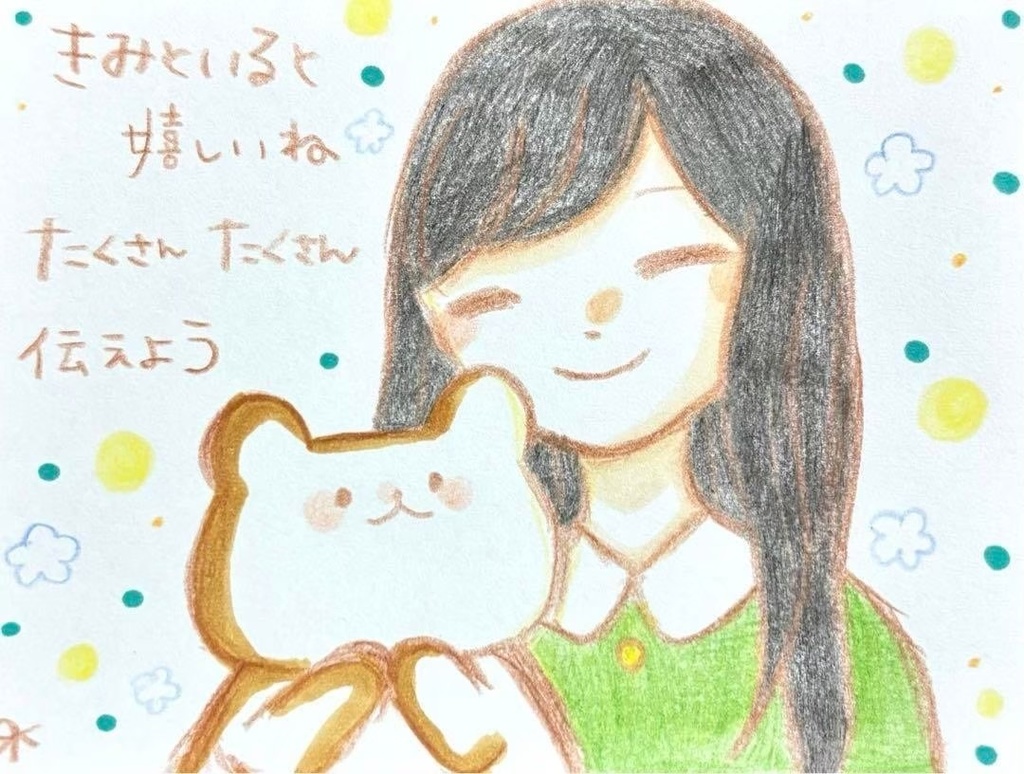 きみといると
嬉しいね
たくさん たくさん
伝えよう